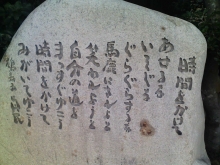 時間をかけて
あせるな
いじけるな
ぐらぐらするな
馬鹿にされようと
笑われようと
自分の道を
まっすぐゆこう
時間をかけて
みがいてゆこう